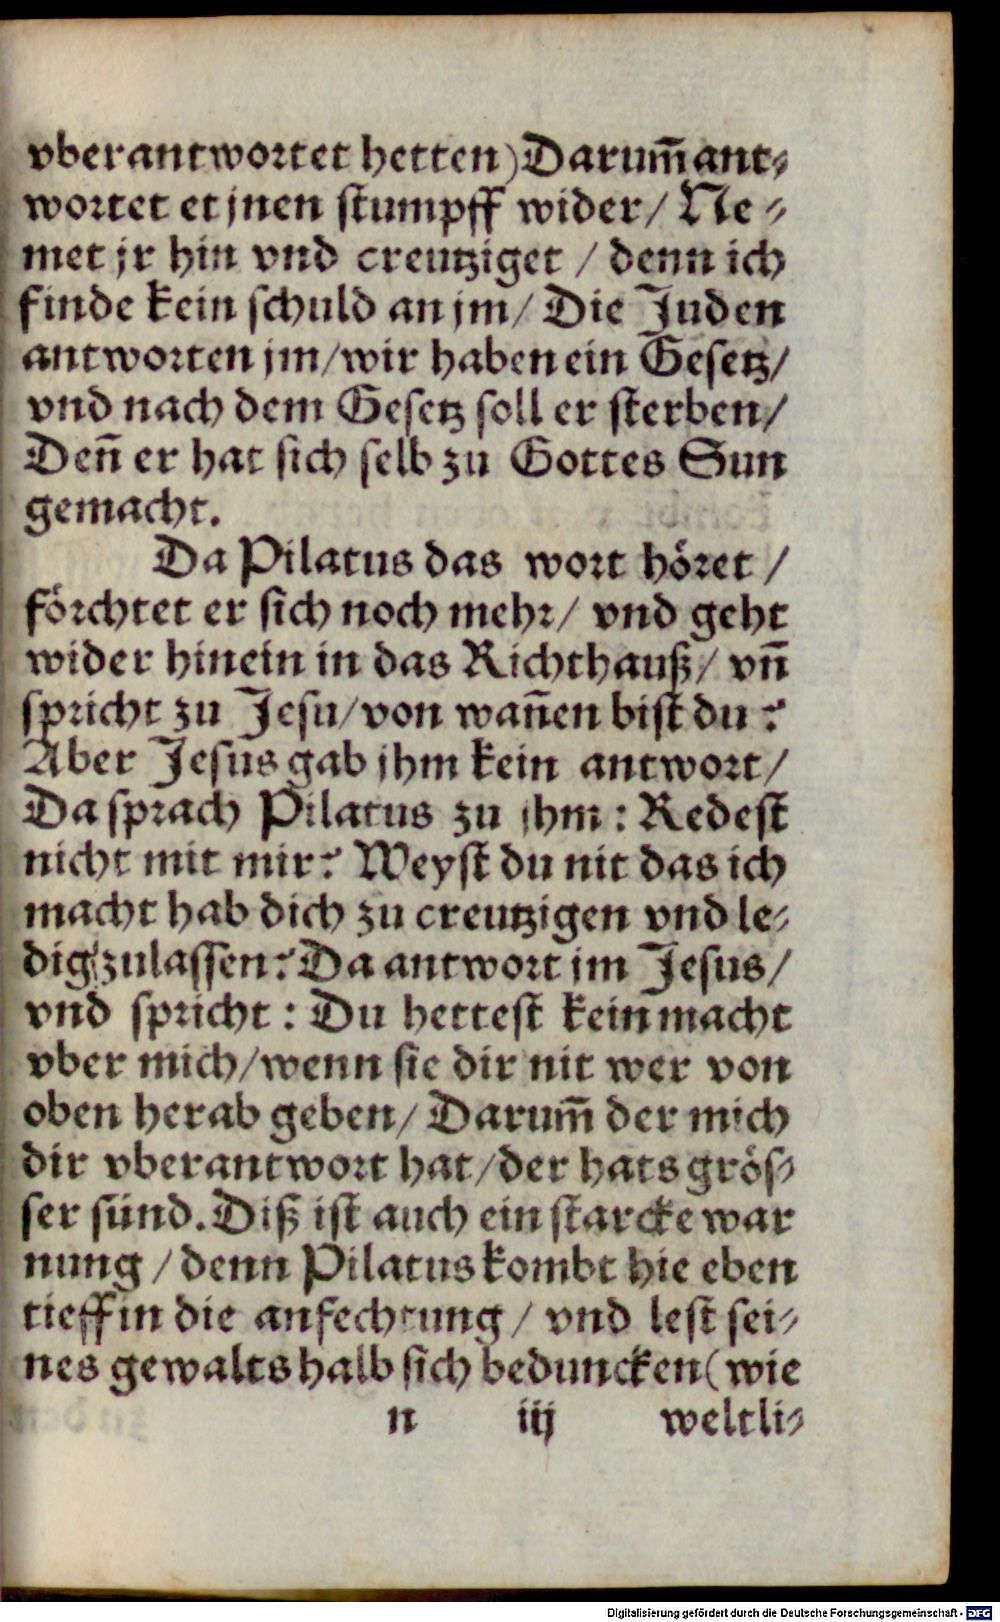 vberantwortet hetten) Darum̃ ant⸗
wortet et jnen stumpff wider/ Ne⸗
met jr hin vnd creutziget / denn ich
finde kein schuld an jm/ Die Juden
antworten jm/ wir haben ein Gesetz/
vnd nach dem Gesetz soll er sterben/
Den̄ er hat sich selb zu Gottes Sun
gemacht.
Da Pilatus das wort höret /
förchtet er sich noch mehr/ vnd geht
wider hinein in das Richthauß/ vn̄
spricht zu Jesu/ von wan̄en bist du?
Aber Jesus gab jhm kein antwort/
Da sprach Pilatus zu jhm: Redest
nicht mit mir? Weyst du nit das ich
macht hab dich zu creutzigen vnd le⸗
dig zulassen? Da antwort jm Jesus/
vnd spricht: Du hettest kein macht
vber mich/ wenn sie dir nit wer von
oben herab geben/ Darum̃ der mich
dir vberantwort hat/ der hats grös⸗
ser sünd. Diß ist auch ein starcke war
nung / denn Pilatus kombt hie eben
tieff in die anfechtung / vnd lest sei⸗
nes gewalts halb sich beduncken (wie
n iij weltli⸗
Digitalisierung gefördert durch die Deutsche Forschungsgemeinschaft - DFG